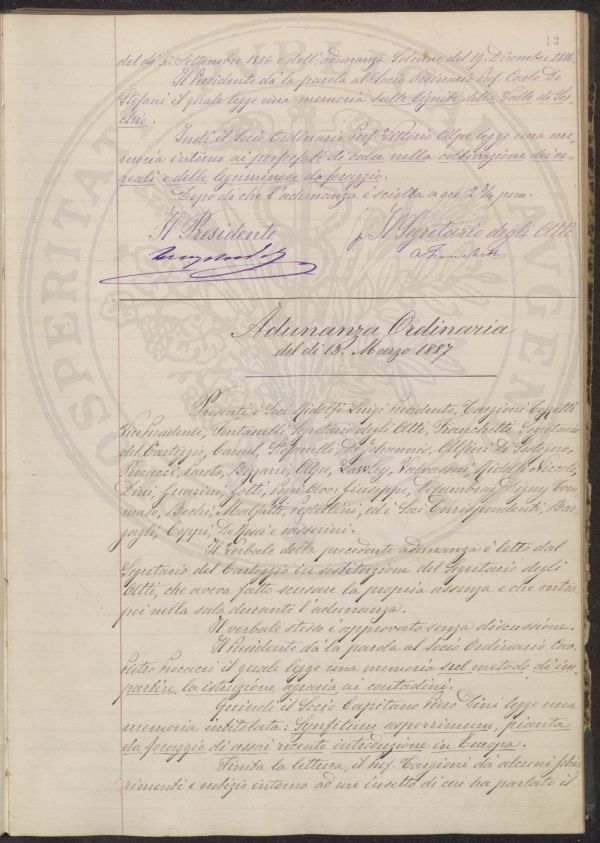 13
del dì 5. Settembre 1886 e dell'adunanza Solenne del 19. Dicembre 1886.
Il Presidente dà la parola al Socio Ordinario Prof. Carlo De
Stefani il quale legge una memoria sulle ligniti della Valle di Ser-
chio.
Indi il Socio Ordinario Prof. Vittorio Alpe legge una me-
moria intorno ai perfosfati di calce nella coltivazione dei ce-
reali e delle leguminose da foraggio.
Dopo di che l'adunanza è sciolta a ore 2 3/4 pom.
Il Presidente
p. Il Segretario degli Atti
A Franchetti
Adunanza Ordinaria
del dì 13. Marzo 1887
Presenti i Soci Ridolfi Luigi Presidente, Targioni Tozzetti
Vice Presidente, Fontanelli Segretario degli Atti, Franchetti Segretario
del Carteggio, Caruel, Stefanelli, De Johannis, Alfieri Di Sostegno,
Procacci, Pareto, Bizzarri, Alpe, Lawley, Valvassori, Ridolfi Niccolò,
Dini, Guarini, Gotti, Pozzi Avv. Giuseppe, Decambray Digny Tom-
maso, Bechi, Malfatti, Pestellini, ed i Soci Corrispondenti, Bar-
gagli, Coppi, De Rossi e Passerini.
Il verbale della precedente adunanza è letto dal
Segretario del Carteggio in sostituzione del Segretario degli
Atti, che aveva fatto scusare la propria assenza e che entra
poi nella sala durante l'adunanza.
Il verbale stesso è approvato senza discussione.
Il Presidente dà la parola al Socio Ordinario Cav.
Pietro Procacci il quale legge una memoria sul metodo di im-
partire la istruzione agraria ai contadini.
Quindi il Socio Capitano Piero Dini legge una
memoria intitolata: Synfitum asperrimum, pianta
da foraggio di assai recente introduzione in Europa.
Finita la lettura, il Prof. Targioni dà alcuni schia-
rimenti e notizie intorno ad un insetto di cui ha parlato il